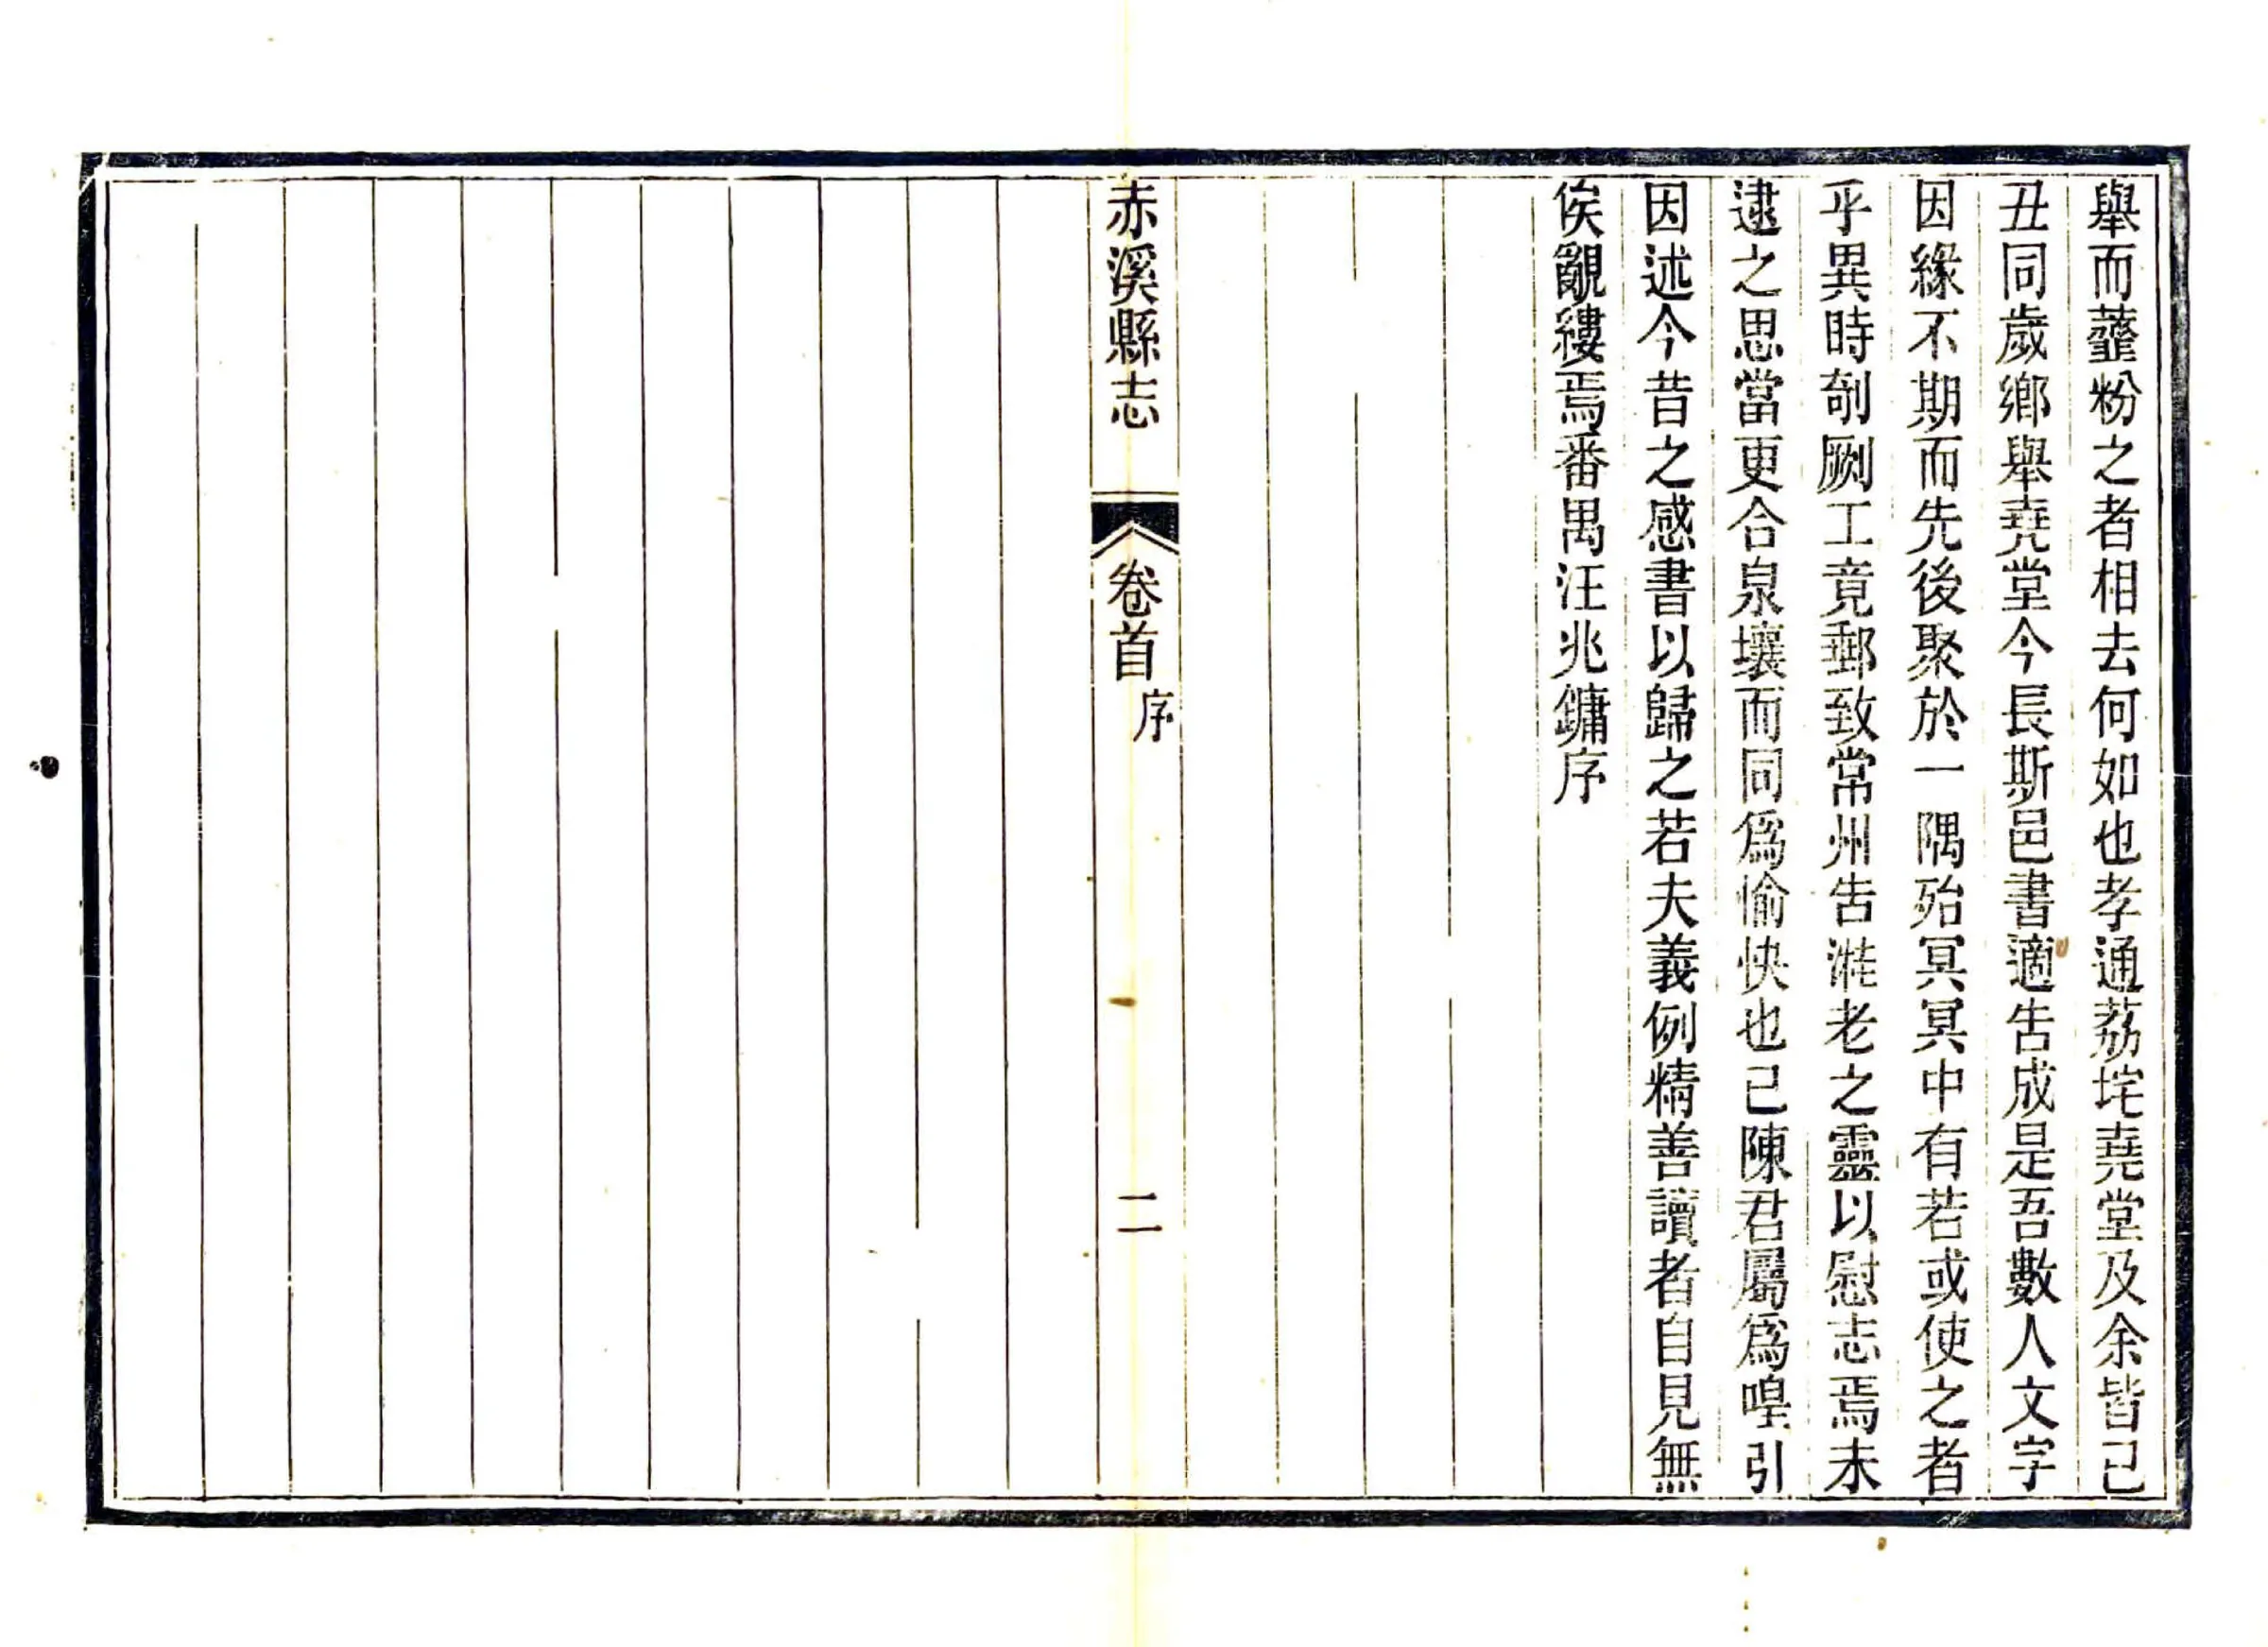 舉而虀粉之者相去何如也孝通荔垞堯堂及余皆已
丑同歲鄉舉堯堂今長斯邑書適告成是吾數人文字
因緣不期而先後聚於一隅殆冥冥中有若或使之者
乎異時剞劂工竟郵致常州告老之靈以慰志焉未
逮之思當更合泉壤而同爲愉快也已陳君屬爲喤引
因述今昔之感書以歸之若夫義例精善讀者自見無
俟覼縷焉番禺汪兆鏞序
赤溪縣志 卷首 序 二